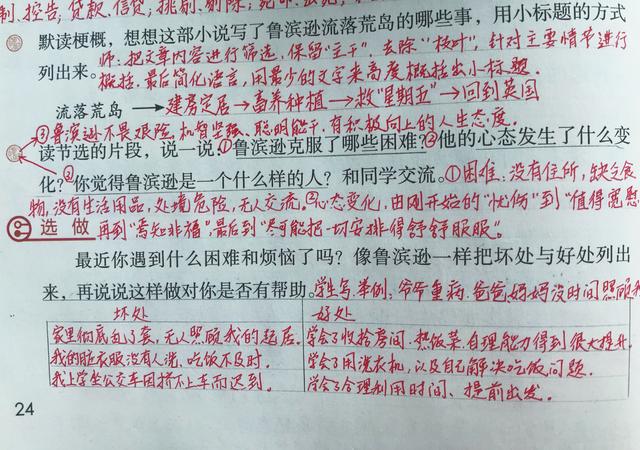 制,控告,贷款,信贷;排剔,剔除;
默读梗概,想想这部小说写了鲁滨逊流落荒岛的哪些事,用小标题的方式
师:把文章内容进行筛选,保留“主干”,去除“枝叶”,针对主要情节进行
列出来。概括.最后简化语言,用最少的文字来高度概括出小标题.
流落荒岛→建房定居→畜养种植→救“星期五”→回到英国
③鲁滨逊不畏艰险,机智坚强、聪明能干,有积极向上的人生态度.
读节选的片段,说一说:①鲁滨逊克服了哪些困难?②他的心态发生了什么变
化?③你觉得鲁滨逊是一个什么样的人?和同学交流。①困难:没有住所,缺乏食
物,没有生活用品,处境危险,无人交流.②心态变化:由刚开始的“忧伤”到“值得宽慰
选做 再到“焉知非福”,最后到“尽可能把一切安排得舒舒服服”.
最近你遇到什么困难和烦恼了吗?像鲁滨逊一样把坏处与好处列出
来,再说说这样做对你是否有帮助。学生写.举例:爷爷重病.爸爸妈妈没时间照顾我
坏处 好处
家里彻底乱了套,无人照顾我的起居. 学会了收拾房间.热饭菜.自理能力得到很大提升.
我的脏衣服没有人洗,吃饭不及时. 学会了用洗衣机,以及自己解决吃饭问题.
我上学坐公交车因挤不上车而迟到. 学会了合理利用时间、提前出发.
24